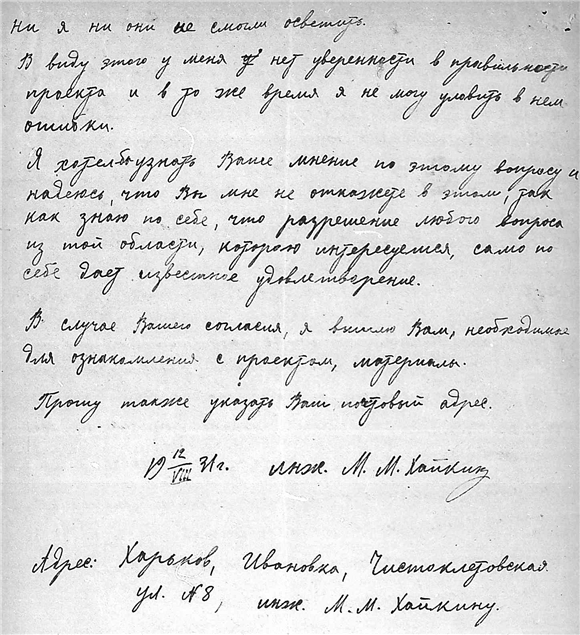 ни я ни они не смогли осветить.
В виду этого у меня нет уверенности в правильности
проекта и в то же время я не могу уловить в нем
ошибки.
Я хотел бы узнать Ваше мнение по этому вопросу и
надеюсь, что Вы мне не откажете в этом, так
как знаю по себе, что разрешение любого вопроса
из той области, которою интересуешся, само по
себе дает известное удовлетворение.
В случае Вашего согласия, я вышлю Вам, необходимые
для ознакамления с проектом, материалы.
Прошу также указать Ваш почтовый адрес.
19 12/VIII 31г. инж. М. М. Хайкин
Адрес: Харьков, Ивановка, Чистоклетовская
ул. №8, инж. М. М. Хайкину.